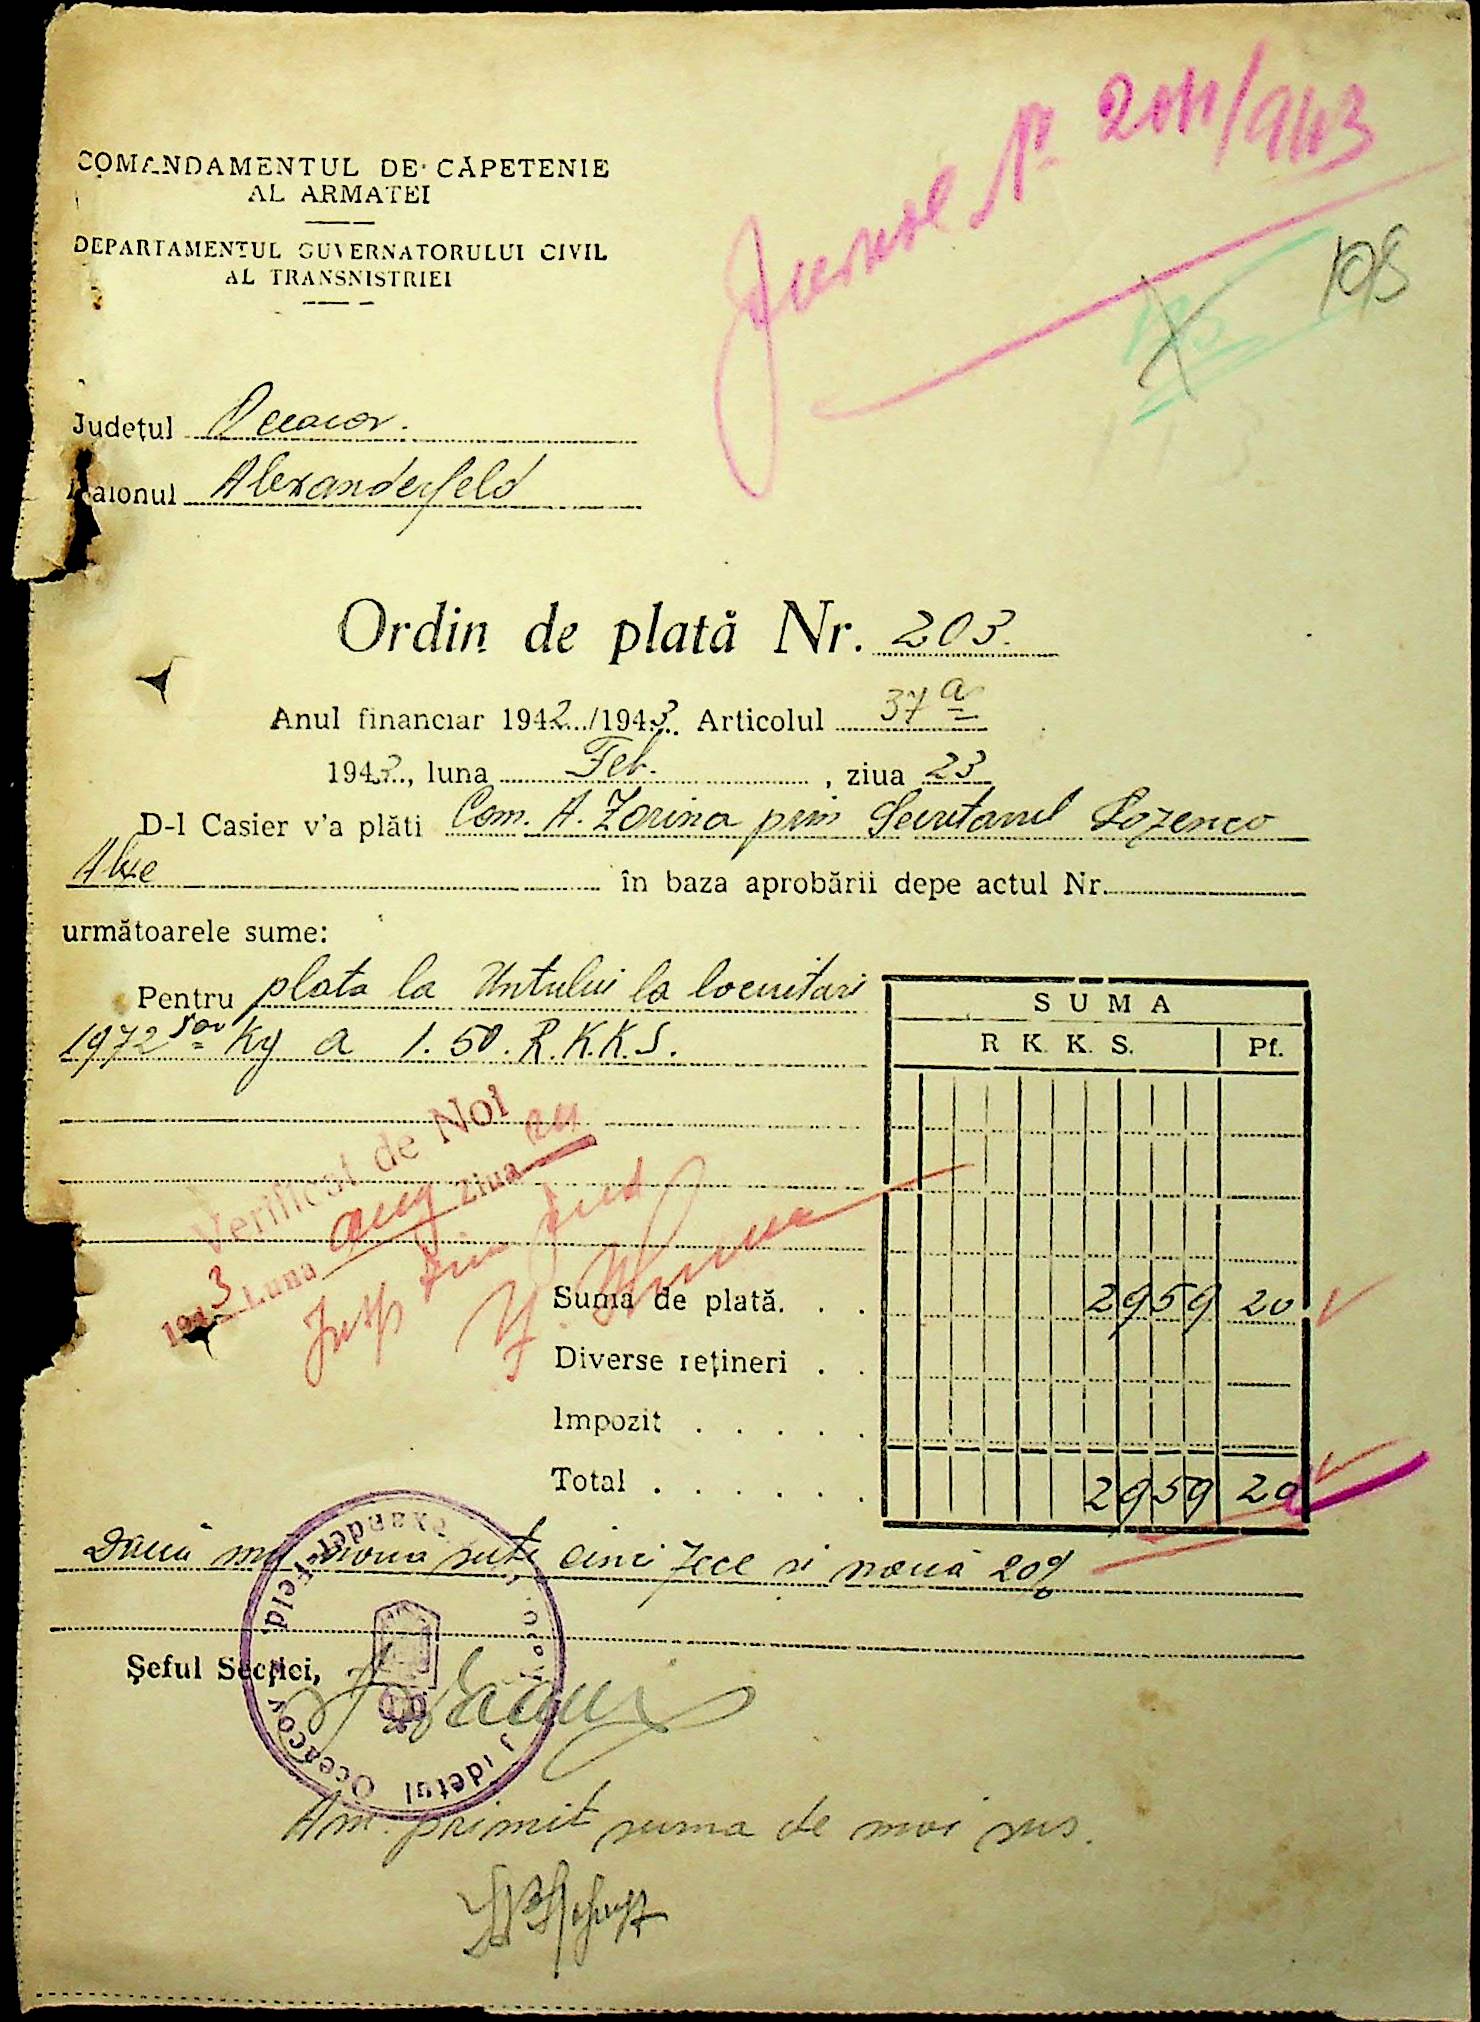 Jurnal Nr. 2011/943
COMANDAMENTUL DE CĂPETENIE
AL ARMATEI
DEPARTAMENTUL GUVERNATORULUI CIVIL
AL TRANSNISTRIEI
103
Județul Oceacov.
Raionul Alexanderfeld
Ordin de plată Nr. 203.
Anul financiar 1942../1943.. Articolul 37 a
1943.., luna Feb. , ziua 23
D-l Casier v'a plăti Com. A. Zorina prin Secretarul Lozenco
în baza aprobării depe actul Nr.
următoarele sume:
Pentru plata la Untului la locuitari
1972 Kg a 1.50. R.K.K.S.
SUMA
R K. K. S. Pf.
Verificat de Noi
1943 Luna aug Ziua
Suma de plată. . . 2959 20
Diverse rețineri . .
Impozit . . . . . .
Total . . . . . . . 2959 20
Două mii noua sute cinci zece si nouă 20%
Șeful Secției,
Județul Oceacov
Am primit suma de mai sus.